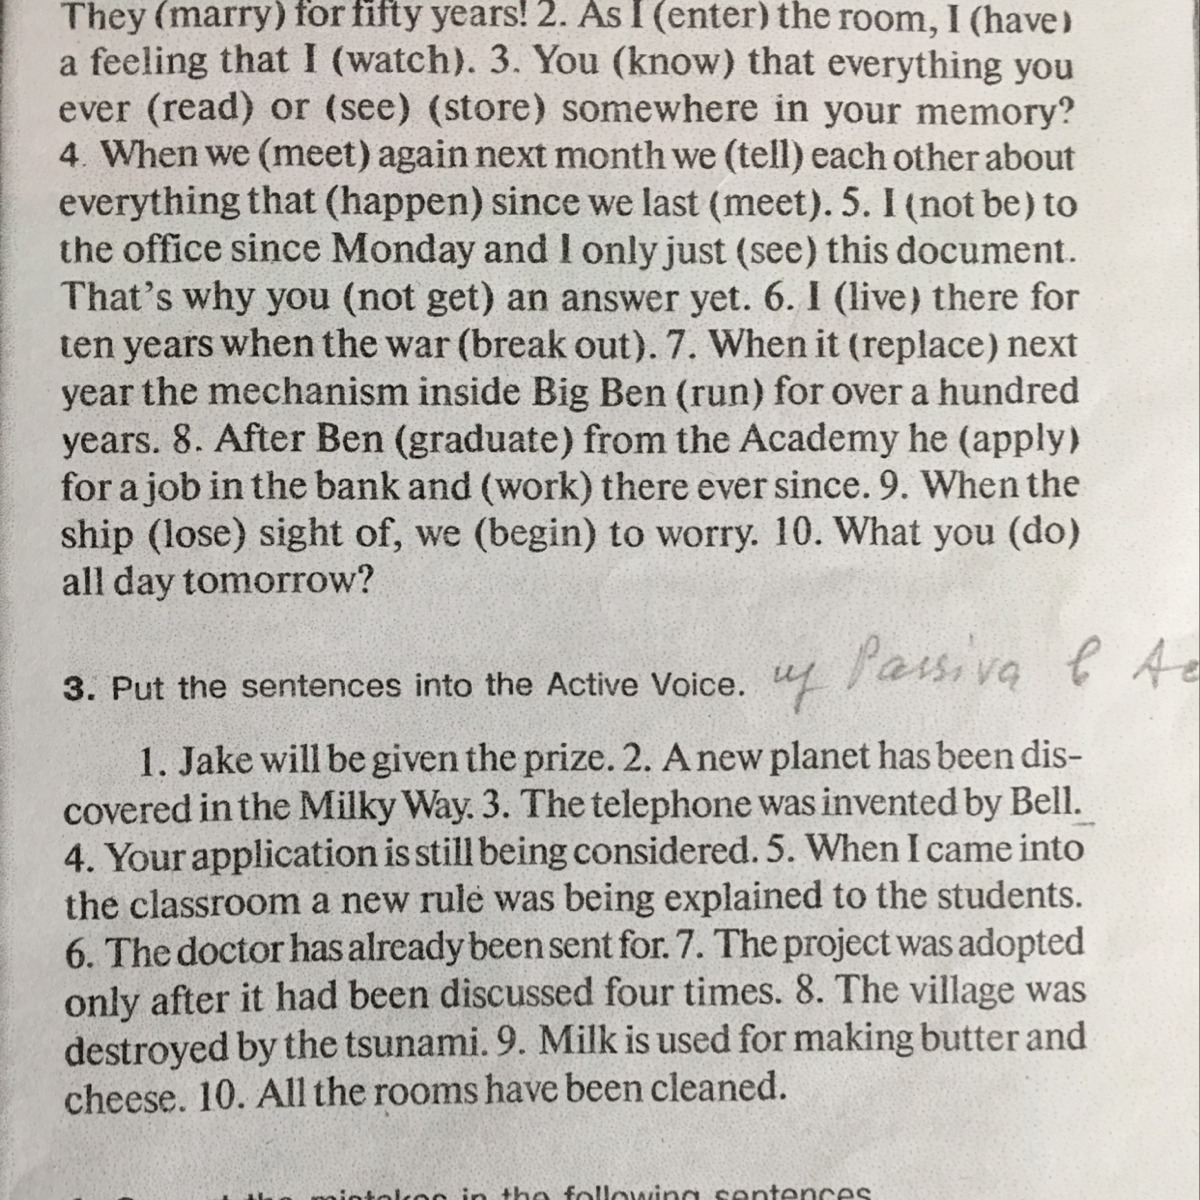 They (marry) for fifty years! 2. As I (enter) the room, I (have)
a feeling that I (watch). 3. You (know) that everything you
ever (read) or (see) (store) somewhere in your memory?
4. When we (meet) again next month we (tell) each other about
everything that (happen) since we last (meet). 5. I (not be) to
the office since Monday and I only just (see) this document.
That's why you (not get) an answer yet. 6. I (live) there for
ten years when the war (break out). 7. When it (replace) next
year the mechanism inside Big Ben (run) for over a hundred
years. 8. After Ben (graduate) from the Academy he (apply)
for a job in the bank and (work) there ever since. 9. When the
ship (lose) sight of, we (begin) to worry. 10. What you (do)
all day tomorrow?
3. Put the sentences into the Active Voice. из Passiva в Ac
1. Jake will be given the prize. 2. A new planet has been dis-
covered in the Milky Way. 3. The telephone was invented by Bell.
4. Your application is still being considered. 5. When I came into
the classroom a new rule was being explained to the students.
6. The doctor has already been sent for. 7. The project was adopted
only after it had been discussed four times. 8. The village was
destroyed by the tsunami. 9. Milk is used for making butter and
cheese. 10. All the rooms have been cleaned.
the mistakes in the following sentences